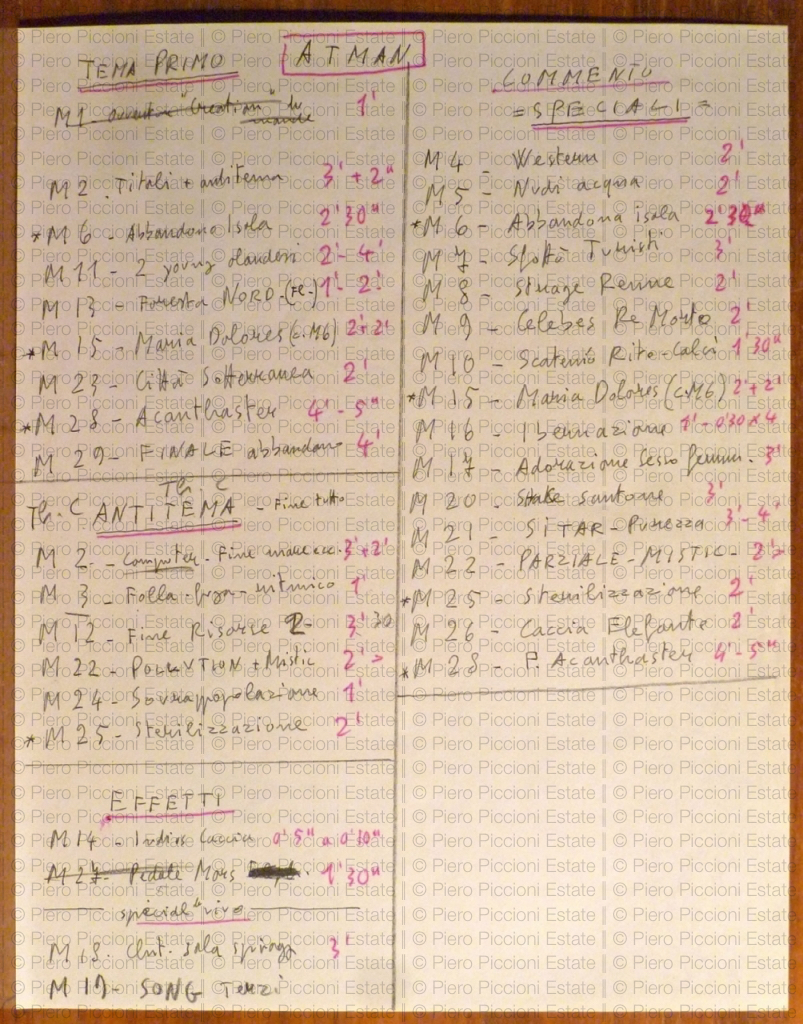 ATMAN
TEMA PRIMO
M1 "Creation" du monde 1'
M 2. Titoli + antitema 3' + 2"
* M 6 - Abbandono Isola 2'30"
M 11 - 2 young olandesi 2' - 4'
M 13 - Foresta NORD - (Fe-) 1' - 2'
* M 15 - Maria Dolores (c. M6) 2'+2'
M 23 - Città Sotterranea 2'
* M 28 - Acanthaster 4' - 5"
M 29 - FINALE abbandono 4'
Th. C
Th. C ANTITEMA - Fine tutto
M 2. - Computer - Fine 3'+2'
M 3 - Folla - fuga - ritmico 1'
M 12 - Fine Risorse 2 - 3' 30
M 22 - POLLUTION + Mistic 2' >
M 24 - Sovrappopolazione 1'
* M 25 - Sterilizzazione 2'
EFFETTI
M 14 - Indios Caccia 0'5" a 0'10"
M 27 - Pedate Mors 1'30"
speciale "vivo
M 18. sala 3'
M 19 - SONG Terzi
COMMENTO
= SPECIALI =
M 4 - Western 2'
M 5 - Nudi acqua 2'
* M 6 - Abbandona isola 2'30"
M 7 - Turisti 3'
M 8 - Renne 2'
M 9 - Celebes Re Morto 2'
M 10 - Rito - Calci 1'30"
* M 15 - Maria Dolores (c. M6) 2'+2'
M 16 - Ibernazione 1' - 0'30 x 4
M 17 - Adorazione Sesso femm. 3'
M 20 - santone 3'
M 21 - SITAR - Purezza 3' - 4'
M 22 - PARZIALE - MISTIC - 2' >
* M 25 - Sterilizzazione 2'
M 26 - Caccia Elefante 2'
* M 28 - P. Acanthaster 4' - 5"
© Piero Piccioni Estate